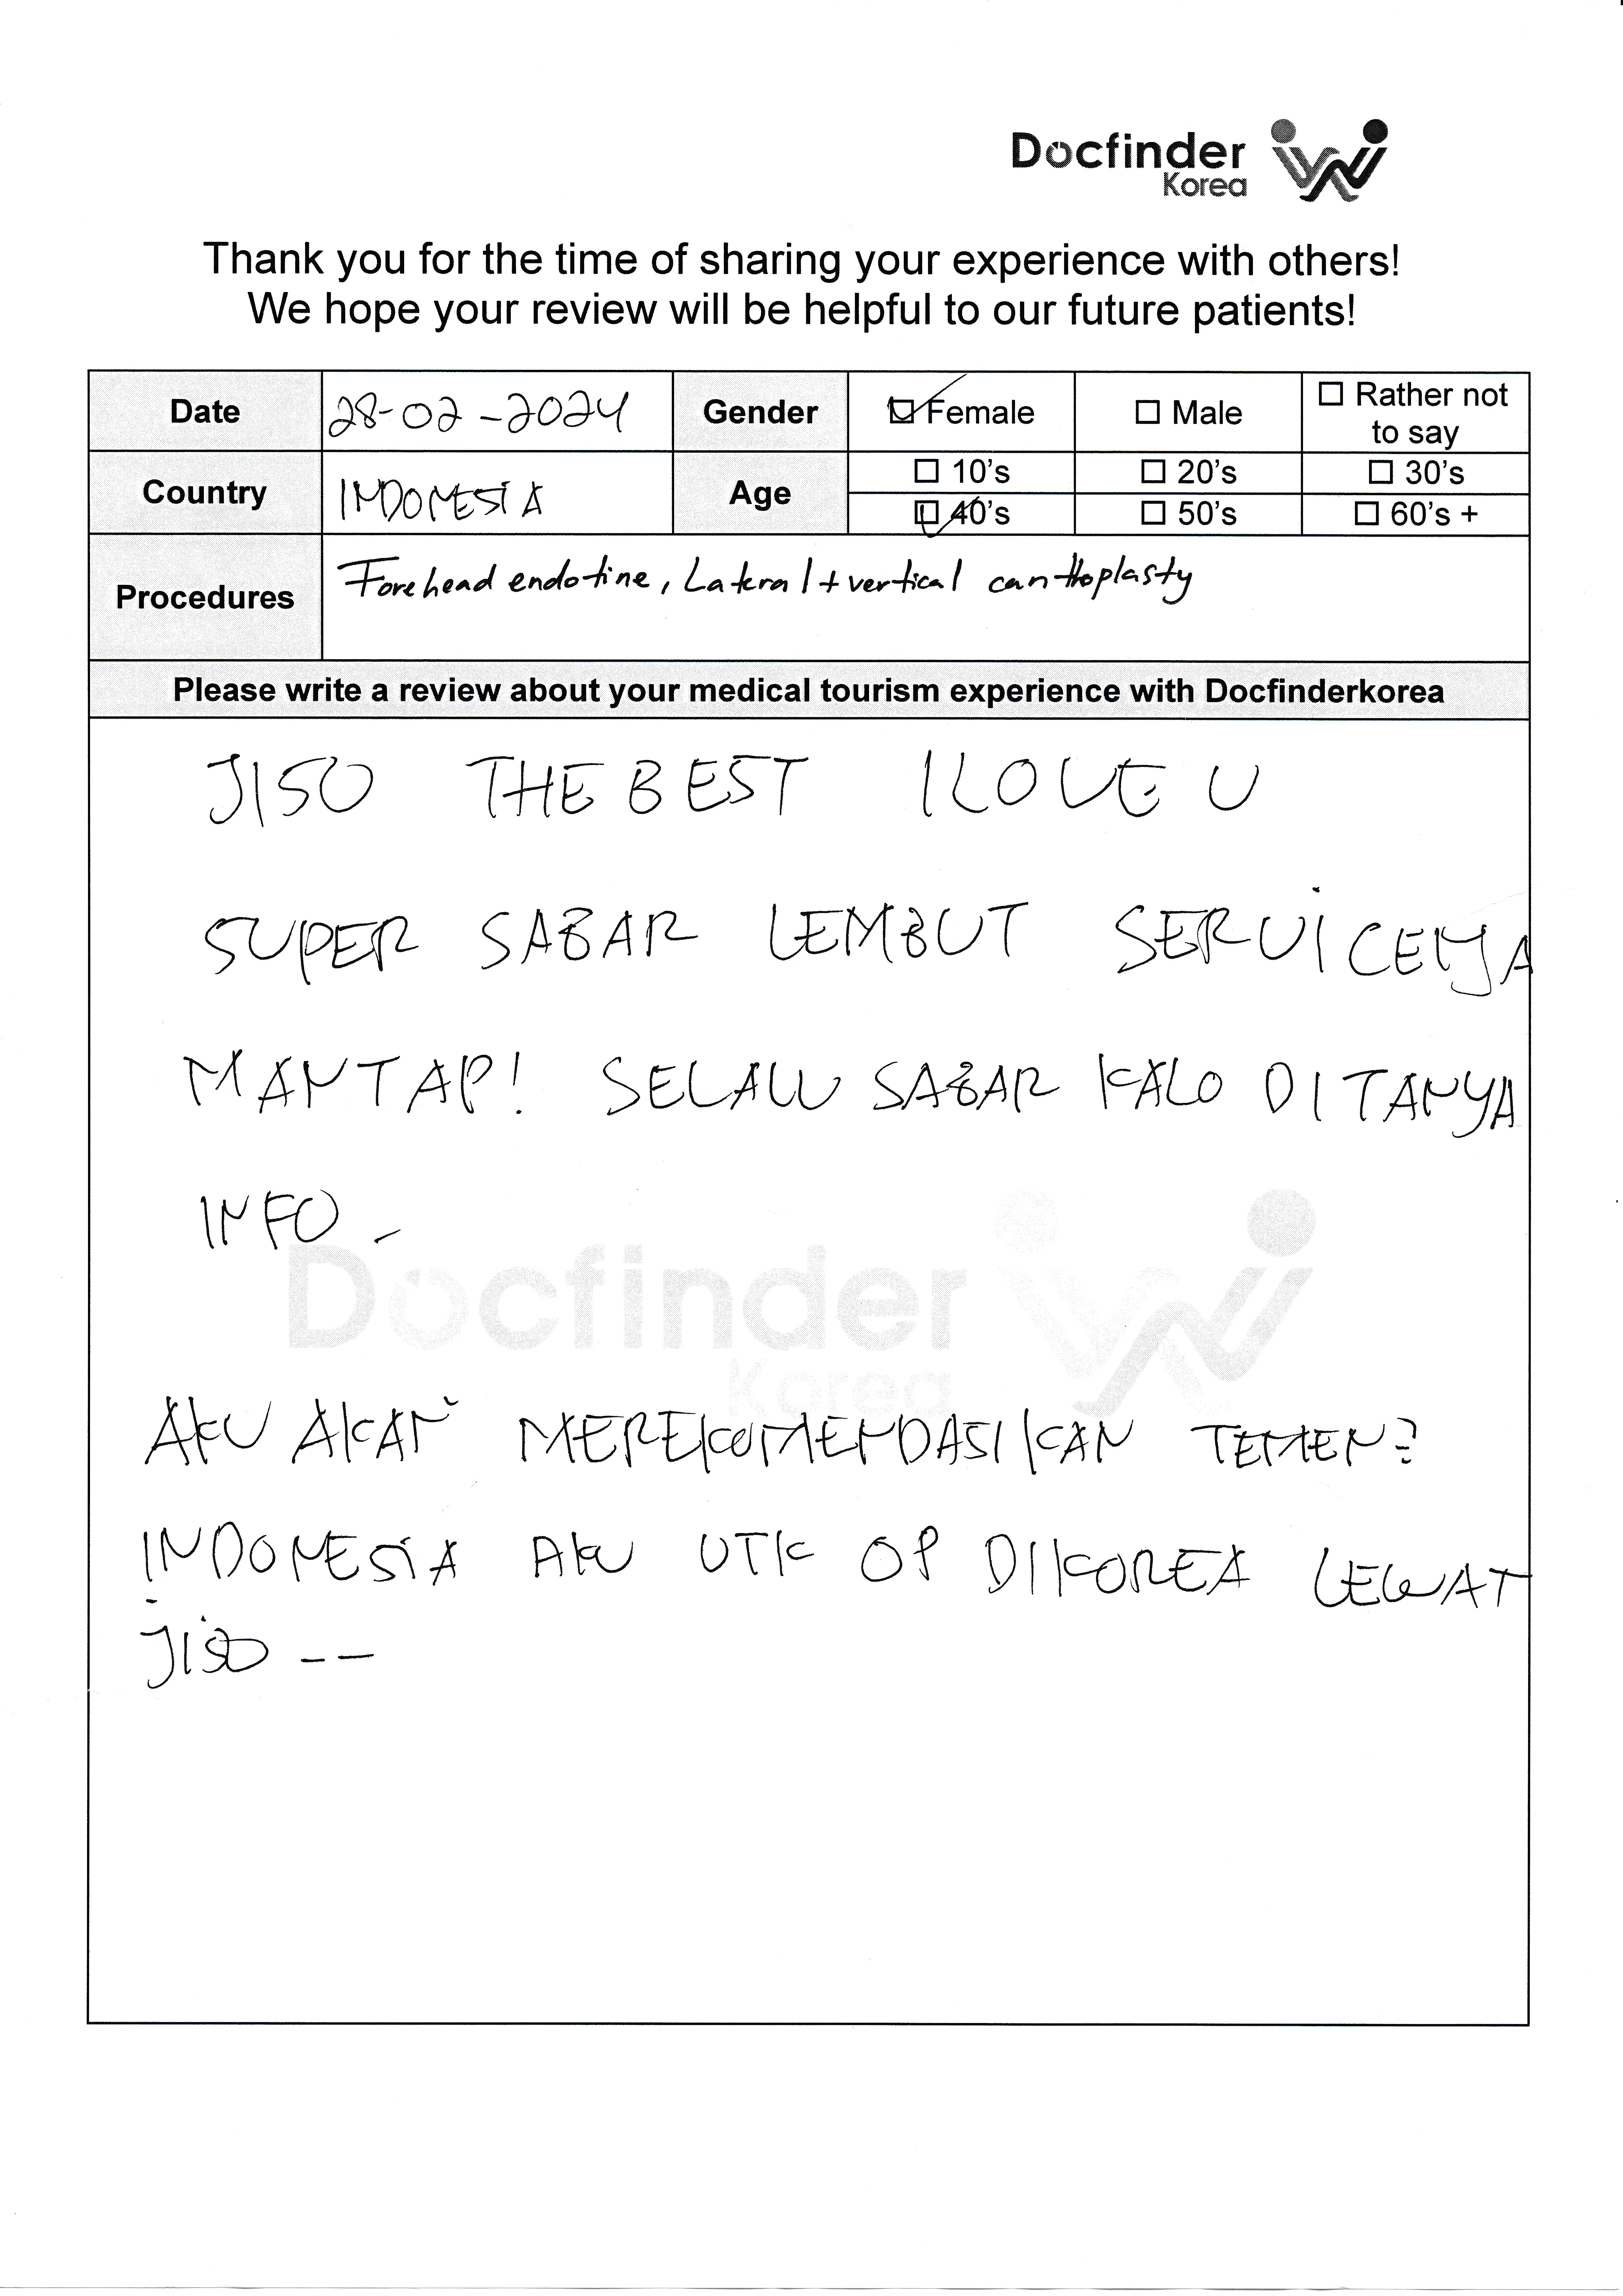 Docfinder
Korea
Thank you for the time of sharing your experience with others!
We hope your review will be helpful to our future patients!
Date 28-02-2024 Gender ☑ Female ☐ Male ☐ Rather not to say
Country INDONESIA Age ☐ 10's ☐ 20's ☐ 30's
☑ 40's ☐ 50's ☐ 60's +
Procedures Forehead endotine, Lateral + vertical canthoplasty
Please write a review about your medical tourism experience with Docfinderkorea
JISO THE BEST I LOVE U
SUPER SABAR LEMBUT SERVICENYA
MANTAP! SELALU SABAR KALO DITANYA
INFO -
Docfinder
Korea
AKU AKAN MEREKOMENDASIKAN TEMEN2
INDONESIA AKU UTK OP DIKOREA LEWAT
JISO --